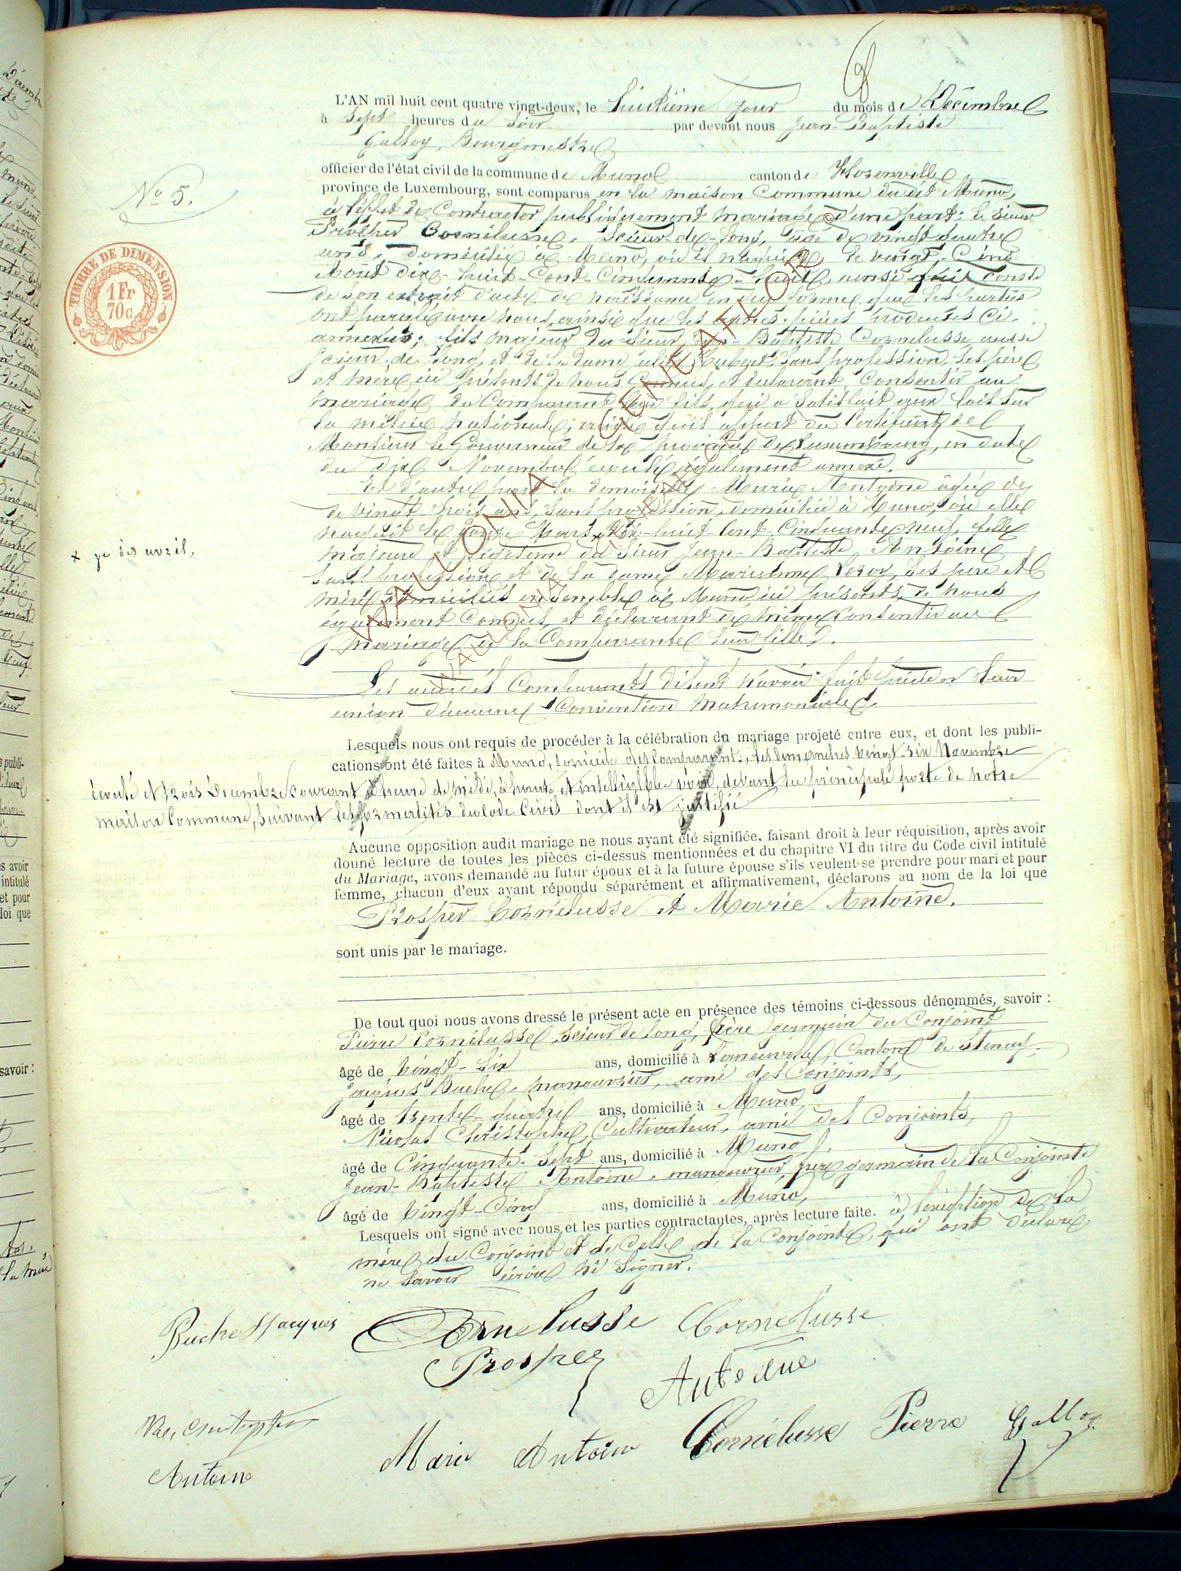 L'AN mil huit cent quatre vingt-deux, le huitième jour du mois de Décembre
à sept heures du soir par devant nous Jean-Baptiste
Galloy, Bourgmestre
officier de l'état civil de la commune de Muno canton de Florenville
province de Luxembourg, sont comparus en la maison Commune du dit Muno,
N° 5.
à l'effet de Contracter publiquement mariage, d'une part: le sieur
Prosper Cornélusse, Scieur-de-long, âgé de vingt-quatre
ans, domicilié à Muno, où il naquit le vingt-Cinq
Août dix-huit-Cent-Cinquante-huit, ainsi constaté
TIMBRE DE DIMENSION
1 Fr
70c
de son extrait d'acte de naissance en due forme que les parties
ont par devant nous, ainsi que les autres pièces produites ci-
annexées; fils majeur du sieur Jean-Baptiste Cornelusse, aussi
scieur de long, et de la dame sans profession, ses père
et mère ici présents, de nous Connus, et déclarant Consentir au
mariage du Comparant leur fils, qui a satisfait aux lois sur
la milice nationale, ainsi qu'il appert du Certificat de
Monsieur le Gouverneur de la province de Luxembourg, en date
du dix Novembre écoulé, également annexé.
Et d'autre part la demoiselle Marie Antoine âgée de
de vingt trois ans, sans profession, domiciliée à Muno, où elle
naquit le Mars dix-huit Cent-Cinquante neuf, fille
majeure et légitime du Sieur Jean-Baptiste Antoine
sans profession et de la dame Marianne ses père et
mère domiciliés ensemble à Muno, ici présents, de nous
également Connus, et déclarant de même Consentir au
mariage de la Comparante leur fille.
Les Comparants disent n'avoir fait sur leur
union d'aucune Convention Matrimoniale.
Lesquels nous ont requis de procéder à la célébration du mariage projeté entre eux, et dont les publi-
cations ont été faites à Muno, domicile des Comparants, les dimanches vingt-six Novembre
écoulé et trois Décembre courant à heure de midi, à haute et intelligible voix, devant la principale porte de notre
maison Commune, suivant les formalités du Code Civil dont il est justifié
Aucune opposition audit mariage ne nous ayant été signifiée, faisant droit à leur réquisition, après avoir
donné lecture de toutes les pièces ci-dessus mentionnées et du chapitre VI du titre du Code civil intitulé
du Mariage, avons demandé au futur époux et à la future épouse s'ils veulent se prendre pour mari et pour
femme, chacun d'eux ayant répondu séparément et affirmativement, déclarons au nom de la loi que
Prosper Cornélusse et Marie Antoine.
sont unis par le mariage.
De tout quoi nous avons dressé le présent acte en présence des témoins ci-dessous dénommés, savoir :
Pierre Cornélusse, scieur de long, frère germain du Conjoint
âgé de vingt-six ans, domicilié à Laneuville, Canton de Stenay
Jacques Buche, manouvrier, ami des Conjoints,
âgé de trente-quatre ans, domicilié à Muno
Nicolas Christophe, Cultivateur, ami des Conjoints,
âgé de Cinquante-sept ans, domicilié à Muno,
Jean-Baptiste Antoine, manouvrier, frère germain de la Conjointe
âgé de vingt-Cinq ans, domicilié à Muno,
Lesquels ont signé avec nous et les parties contractantes, après lecture faite. à l'exception de la
mère du Conjoint et de Celle de la Conjointe, qui ont déclaré
ne savoir écrire ni signer.
Buche Jacques Cornelusse Cornelusse
Prosper Antoine
Marie Antoine Cornélusse Pierre Galloy
Antoine
WALLONIA GENEALOR